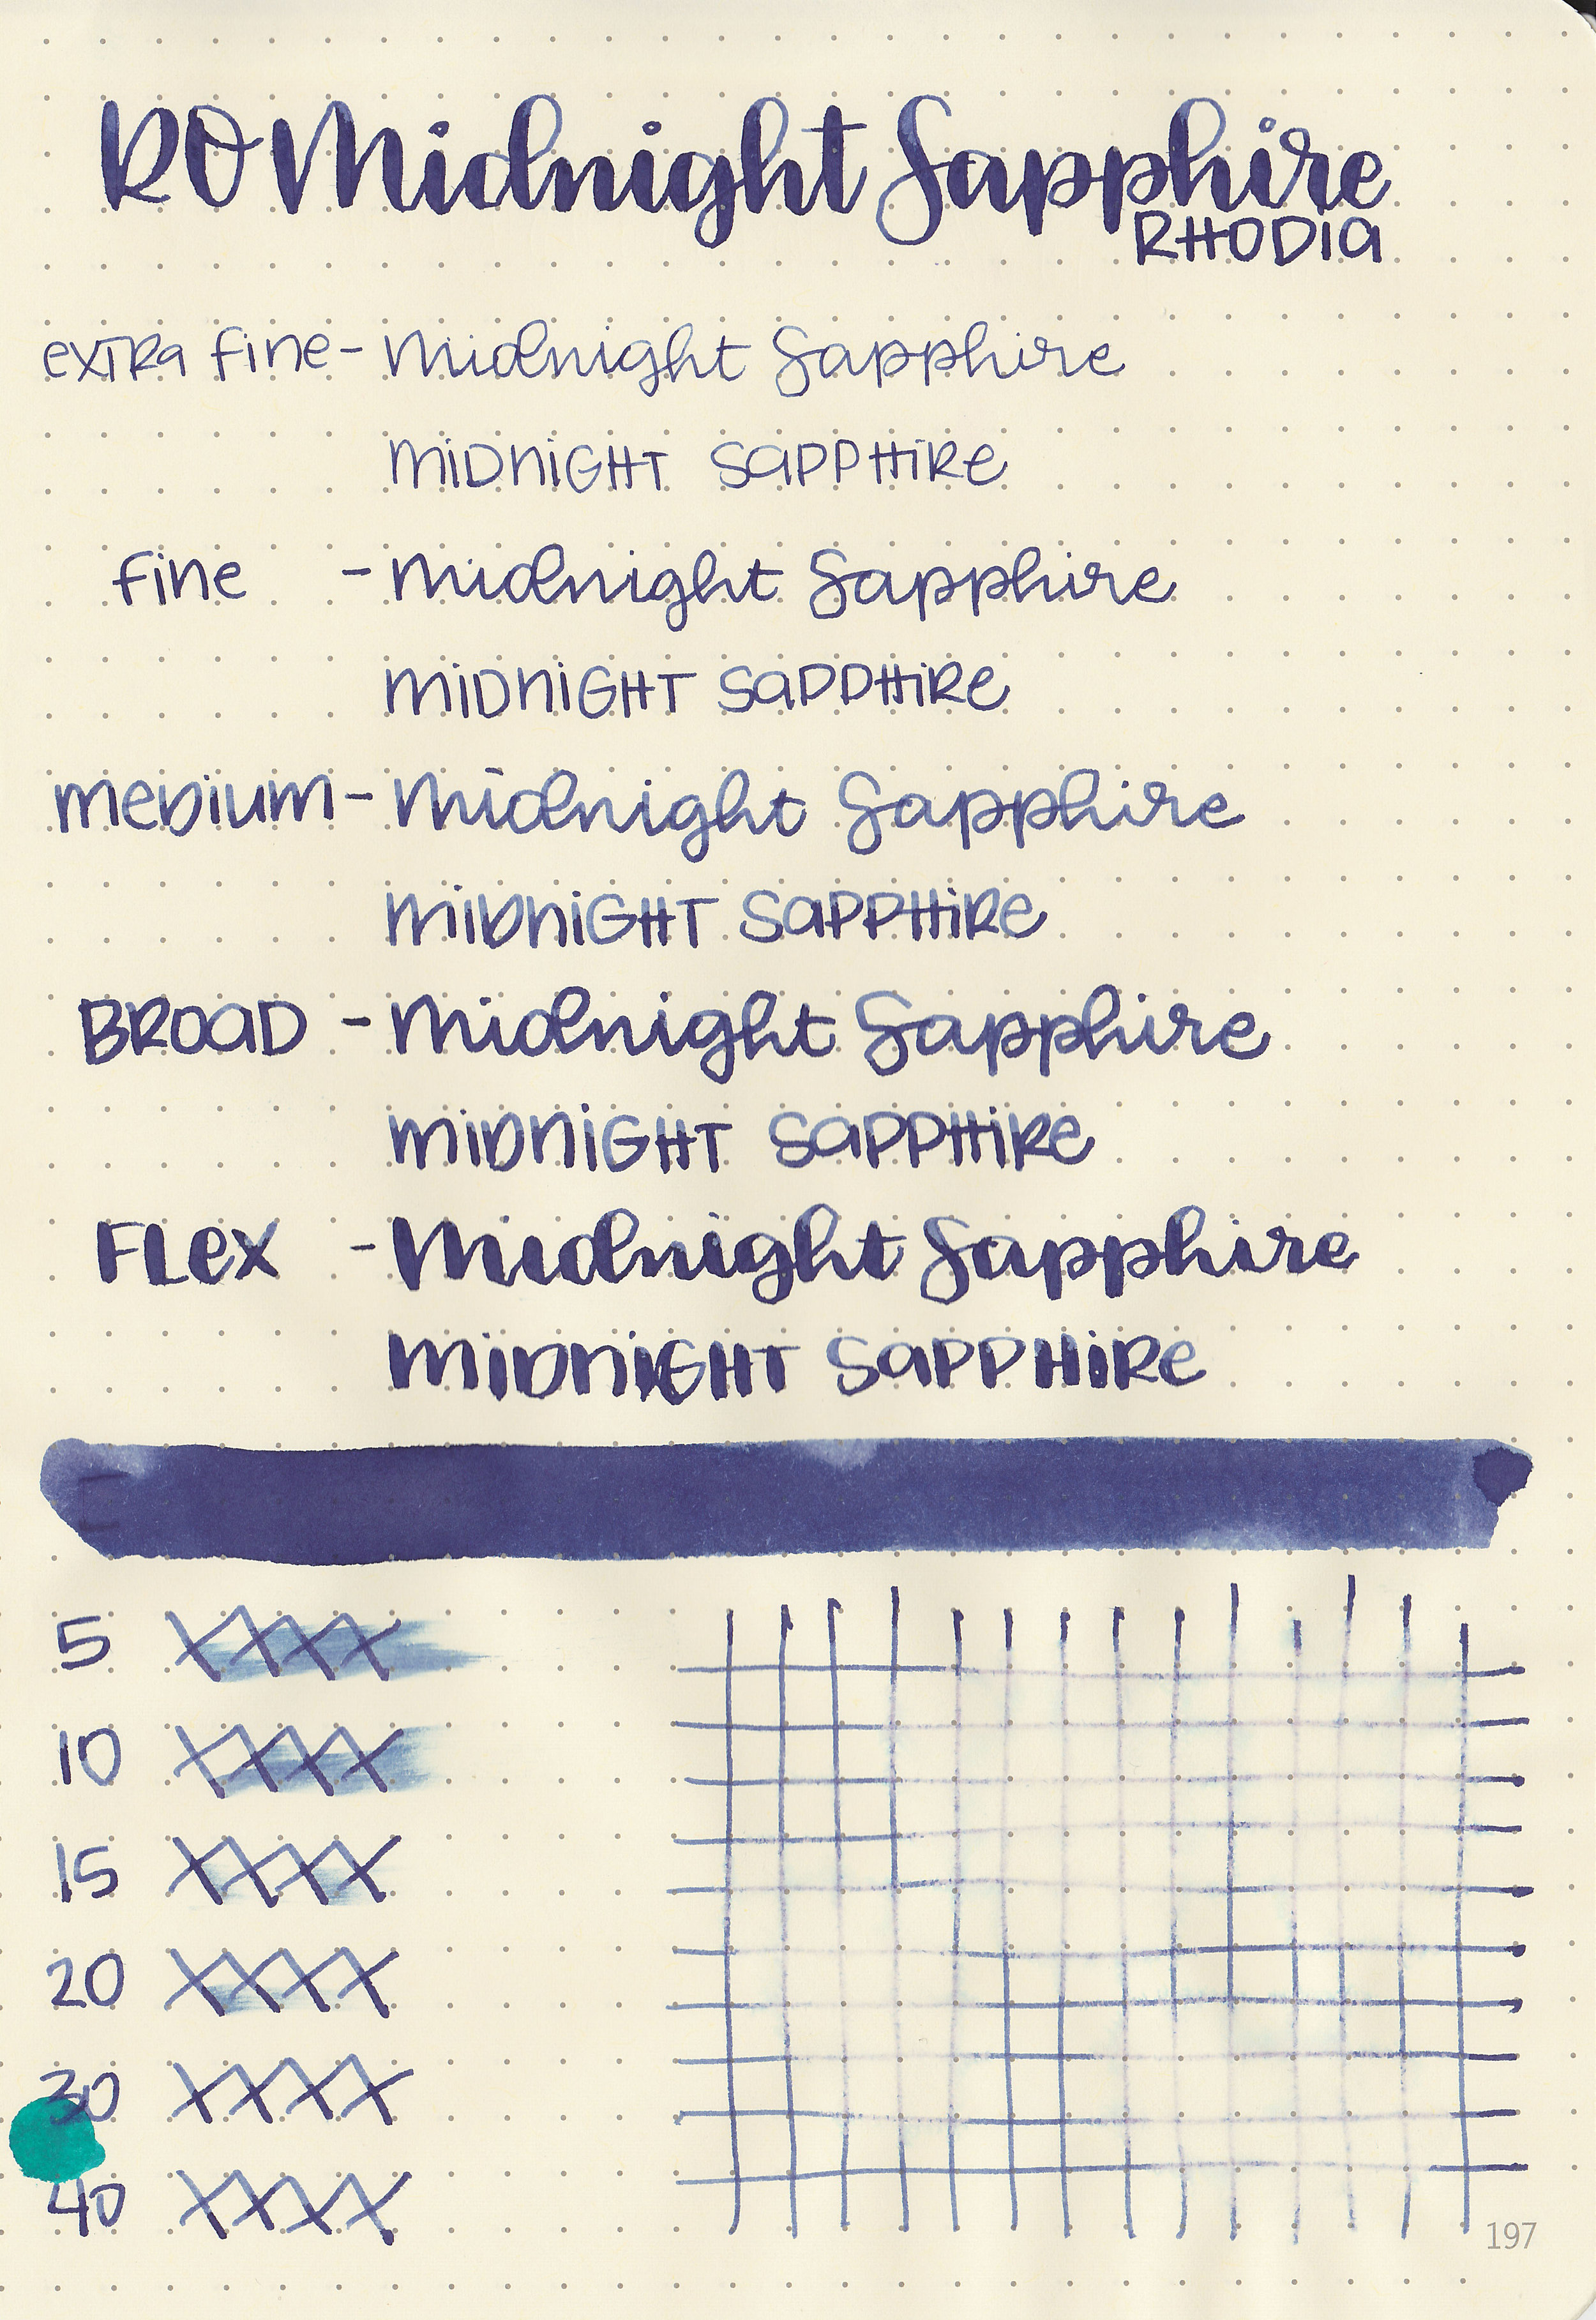 RO Midnight Sapphire
RHODIA
extra fine - Midnight Sapphire
MIDNIGHT SAPPHIRE
fine - Midnight Sapphire
MIDNIGHT SAPPHIRE
medium - Midnight Sapphire
MIDNIGHT SAPPHIRE
BROAD - Midnight Sapphire
MIDNIGHT SAPPHIRE
FLex - Midnight Sapphire
MIDNIGHT SAPPHIRE
5 XXXX
10 XXXX
15 XXXX
20 XXXX
30 XXXX
40 XXXX
197